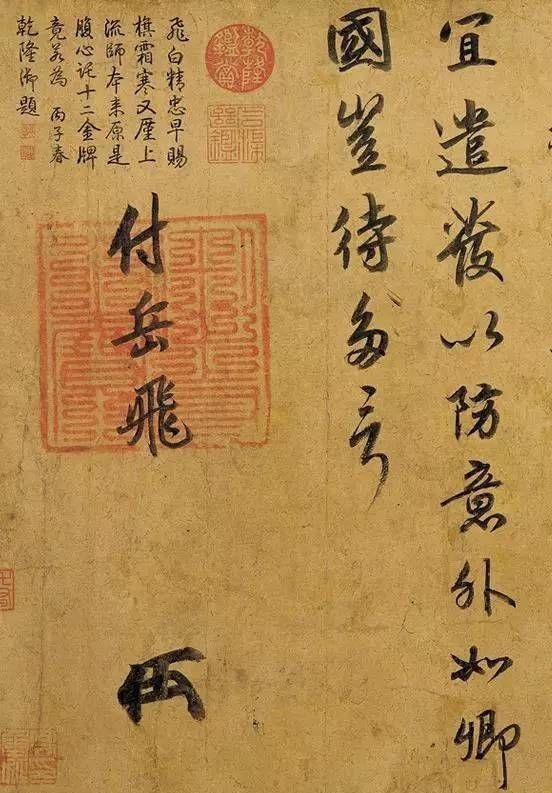 宜遣發以防意外如卿
國豈待多言
飛白精忠早賜
旗霜寒又廑上
流師本來原是
腹心託十二金牌
竟若為 丙子春
乾隆御題
乾隆鑑賞
付岳飛